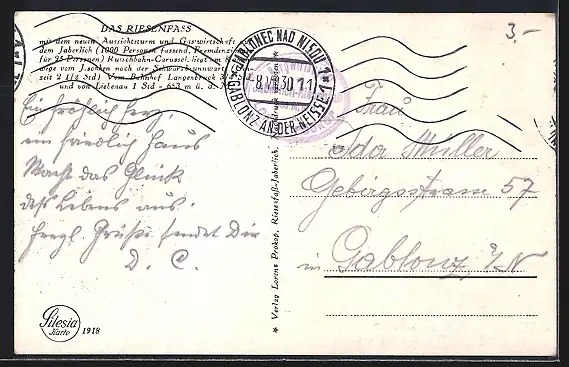 DAS RIESENFASS
mit dem neuen Aussichtsturm und Gaswirtschaft
dem Jaberlich (1000 Personen fassend, Fremdenzim
für 25 Personen) Rutschbahn-Carussel, liegt am
wege vom J.
zeit 2 1/2 Std) Vom Bahnhof Langenbruck 3/
und von Liebenau 1 Std - 653 m ü. d. M.
JABLONEC NAD NISOU 1
8.VI.30 11
GABLONZ AN DER NEISSE 1
Ein fröhlich Herz,
ein friedlich Haus
Macht das Glück
des Lebens aus.
Herzl. Grüße sendet Dir
D. C.
Frau
Ida Müller
Gebirgsstrasse 57
in Gablonz a/N
* Verlag Lorenz Prokop, Riesenfaß-Jaberlich.
Silesia
Karte
1918
3,-